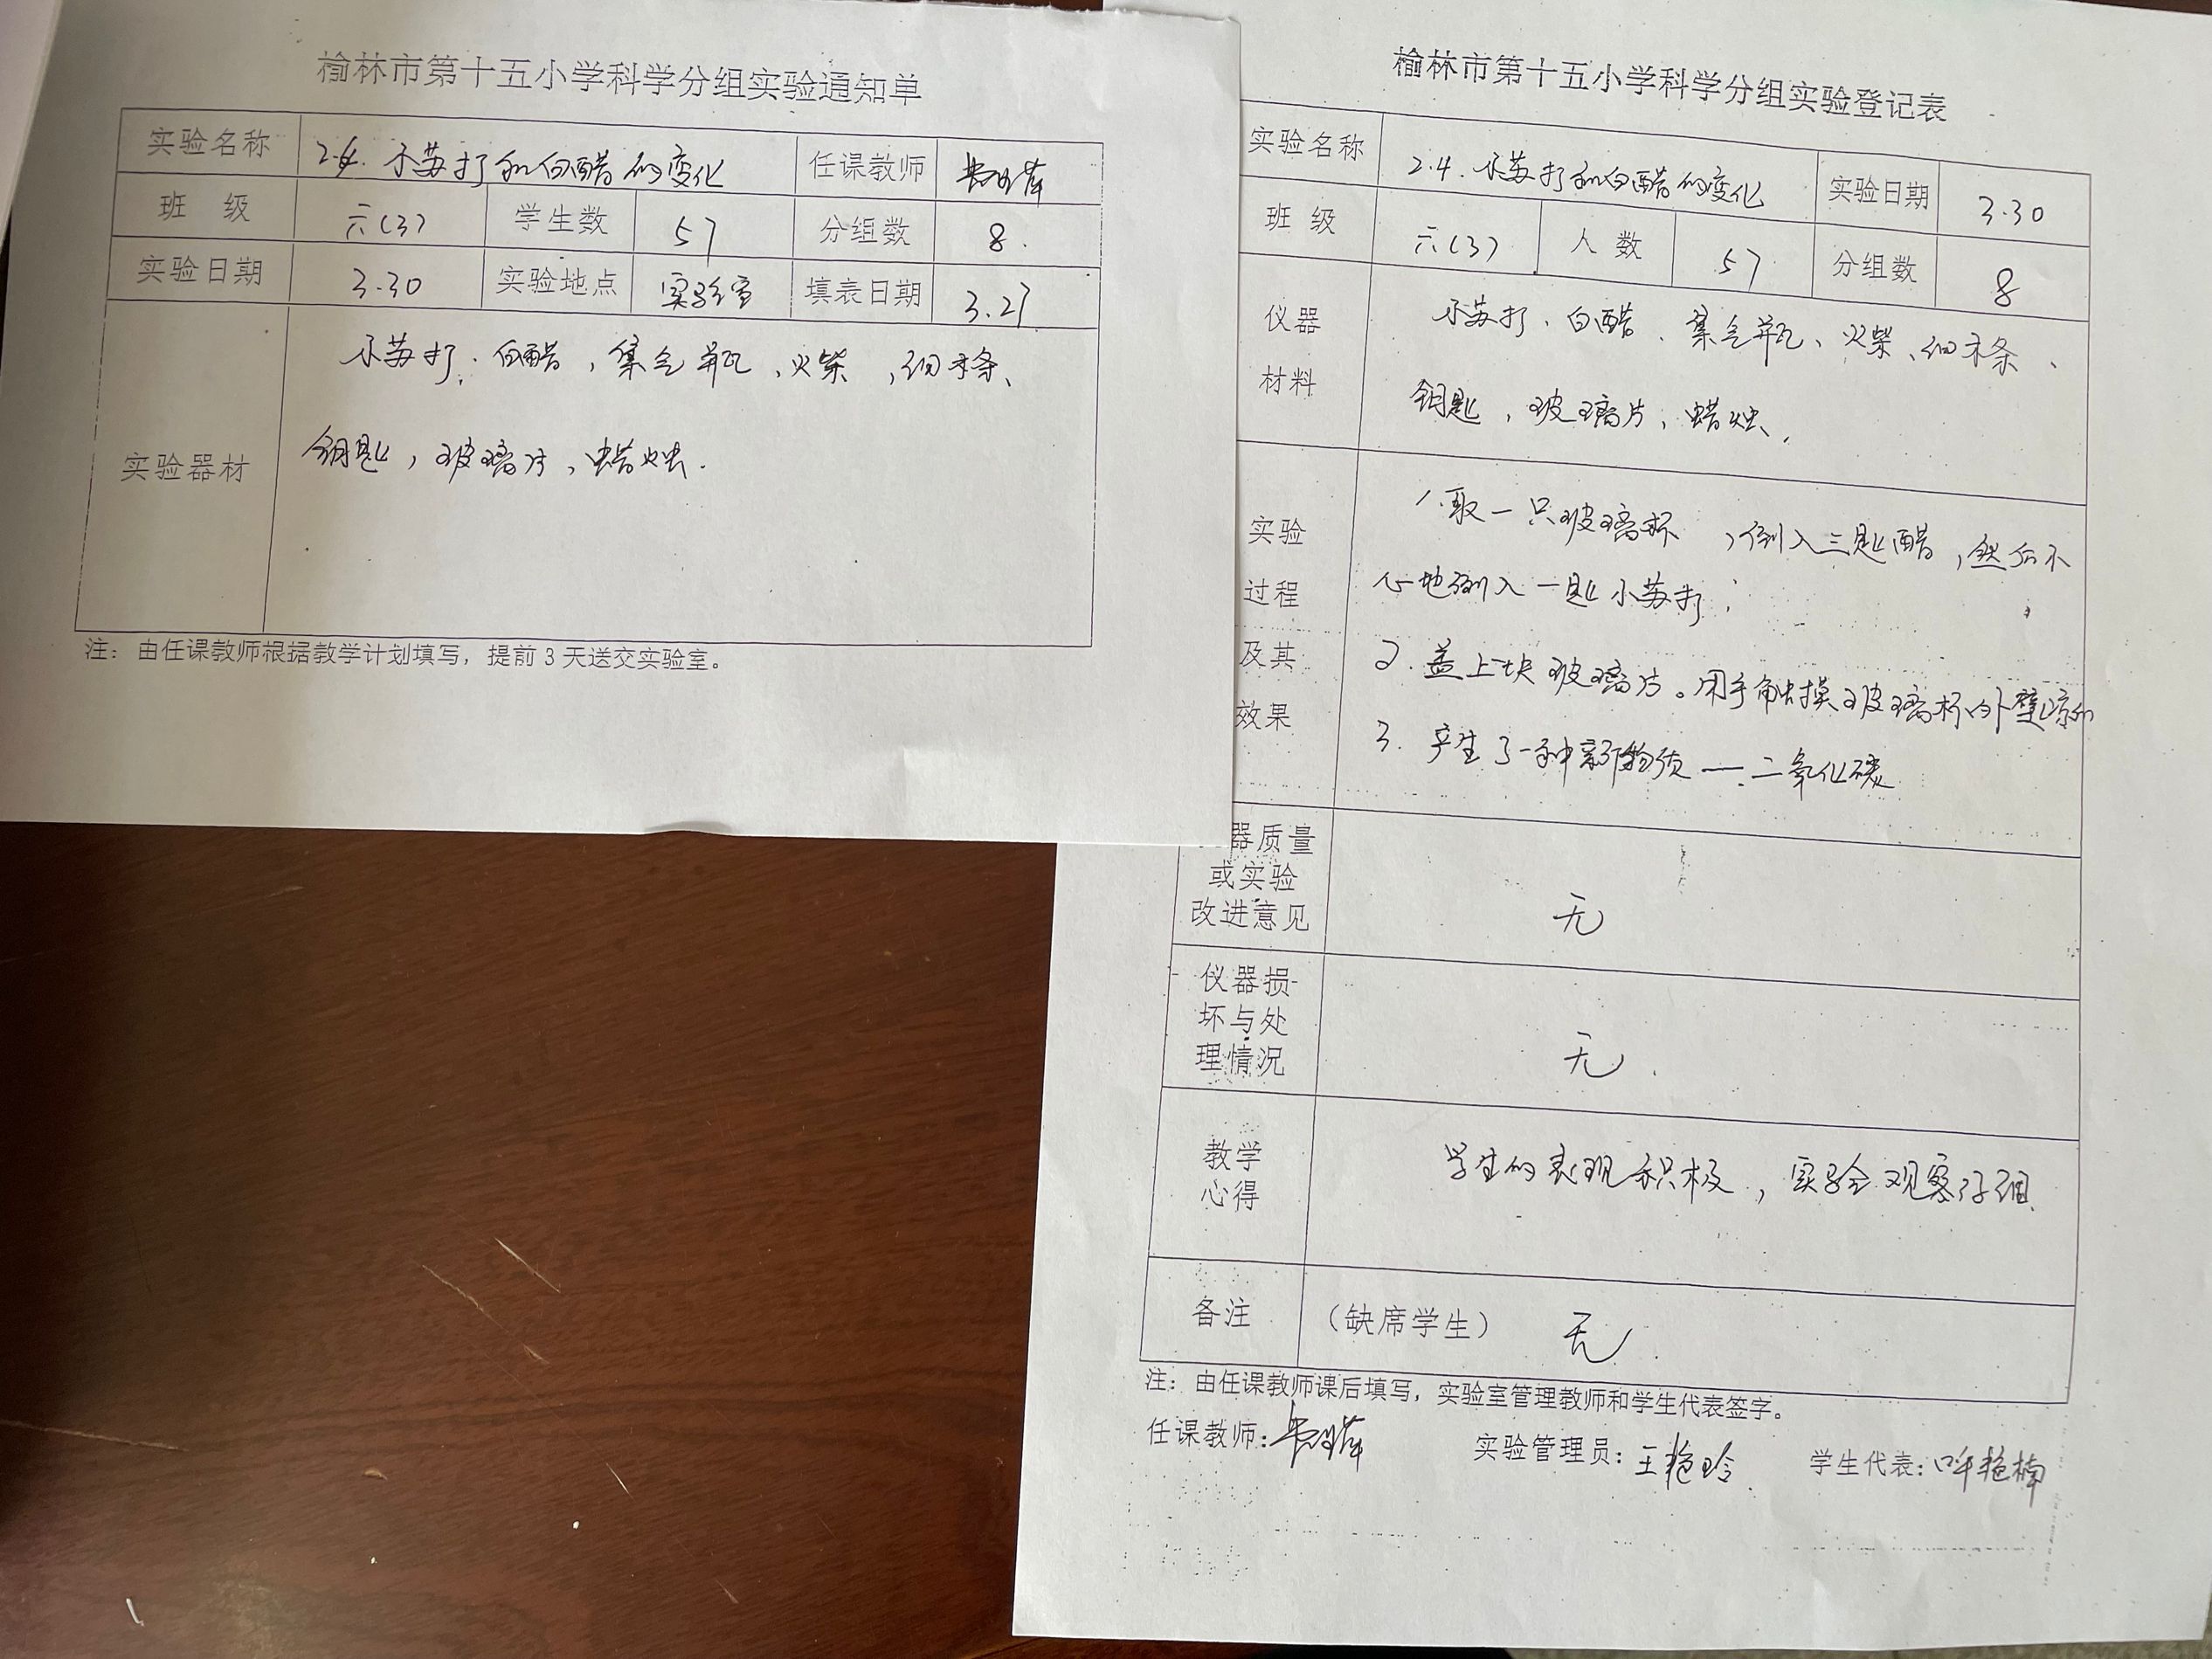 榆林市第十五小学科学分组实验通知单
实验名称 2.4. 小苏打和白醋的变化 任课教师
班 级 六(3) 学生数 57 分组数 8.
实验日期 3.30 实验地点 实验室 填表日期 3.27
实验器材
小苏打、白醋,集气瓶、火柴,细木条、
钥匙,玻璃片、蜡烛.
注:由任课教师根据教学计划填写,提前3天送交实验室。
榆林市第十五小学科学分组实验登记表
实验名称 2.4.小苏打和白醋的变化 实验日期 3.30
班 级 六(3) 人 数 57 分组数 8
仪器
材料
小苏打、白醋、集气瓶、火柴、细木条、
钥匙,玻璃片,蜡烛、.
实验
过程
及其
效果
1.取一只玻璃杯,倒入三匙醋,然后小
心地倒入一匙小苏打.
2.盖上块玻璃片。用手触摸玻璃杯外壁
3.产生了一种新物质——二氧化碳
器质量
或实验
改进意见
无
仪器损
坏与处
理情况
无.
教学
心得
学生的表现积极,实验观察仔细.
备注 (缺席学生) 无.
注:由任课教师课后填写,实验室管理教师和学生代表签字。
任课教师: 实验管理员:王艳玲 学生代表:呼艳楠